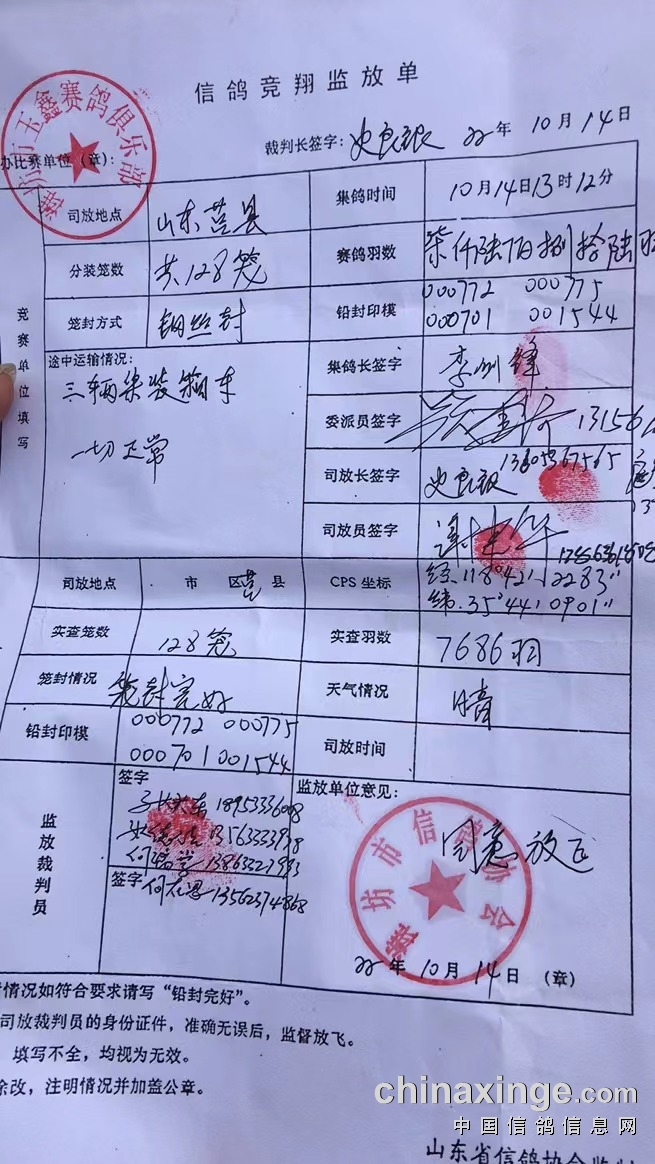 信鸽竞翔监放单
坊市玉鑫赛鸽俱乐部
办比赛单位(章):
裁判长签字: 22年10月14日
竞赛单位填写
司放地点 山东莒县 集鸽时间 10月14日13时12分
分装笼数 共128笼 赛鸽羽数 柒仟陆佰捌拾陆羽
笼封方式 钢丝封 铅封印模 000772 000775
000701 001544
途中运输情况: 集鸽长签字
三辆集装箱车
一切正常
委派员签字 13156
司放长签字 13805367565
司放员签字
司放地点 市 区莒县 CPS 坐标 经.118°42'12283"
纬.35°44'0901"
实查笼数 128笼 实查羽数 7686羽
笼封情况 笼封完好 天气情况 晴
铅封印模 000772 000775
000701 001544 司放时间
监放裁判员
签字 监放单位意见:
18953336008
13563333938
13863527993
签字 13562374868
同意放飞
坊市信鸽协会
22年10月14日 (章)
情况如符合要求请写“铅封完好”。
司放裁判员的身份证件,准确无误后,监督放飞。
填写不全,均视为无效。
涂改,注明情况并加盖公章。
chinaxinge.com
中国信鸽信息网
山东省信鸽协会监制